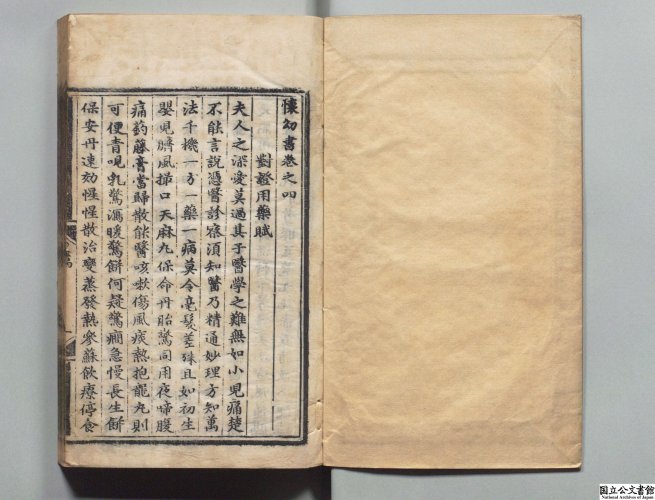 懐幼書卷之四
對證用藥賦
夫人之深愛莫過其子醫學之難無如小兒痛楚
不能言說憑醫診察須知醫乃精通妙理方知萬
法千機一方一藥一病莫令毫髮差殊且如初生
嬰兒臍風撮口天麻丸保命丹胎驚同用夜啼腹
痛芍藥膏當歸散能醫咳嗽傷風痰熱抱龍丸則
可便青吐乳驚瀉暖驚餅何疑驚癎急慢長生餅
保安丹速効惺惺散治變蒸發熱參蘇飲療停食
国立公文書館
National Archives of Japan